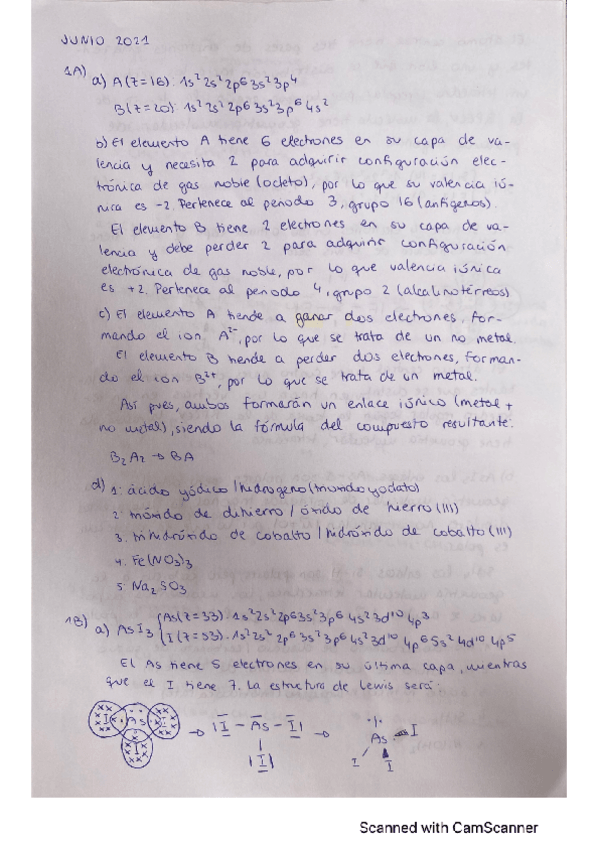 JUNIO 2021
1A)
a) A(Z=16): 1s² 2s² 2p⁶ 3s² 3p⁴
B(Z=20): 1s² 2s² 2p⁶ 3s² 3p⁶ 4s²
b) El elemento A tiene 6 electrones en su capa de va-
lencia y necesita 2 para adquirir configuración elec-
trónica de gas noble (octeto), por lo que su valencia ió-
nica es -2. Pertenece al periodo 3, grupo 16 (anfígenos).
El elemento B tiene 2 electrones en su capa de va-
lencia y debe perder 2 para adquirir configuración
electrónica de gas noble, por lo que valencia iónica
es +2. Pertenece al periodo 4, grupo 2 (alcalinotérreos)
c) El elemento A tiende a ganar dos electrones, for-
mando el ion A²⁻, por lo que se trata de un no metal.
El elemento B tiende a perder dos electrones, forman-
do el ion B²⁺, por lo que se trata de un metal.
Así pues, ambos formarán un enlace iónico (metal +
no metal), siendo la fórmula del compuesto resultante:
B₂A₂ → BA
d) 1. ácido yódico / hidrogeno(trioxidoyodato)
2. trióxido de dihierro / óxido de hierro (III)
3. trihidróxido de cobalto / hidróxido de cobalto (III)
4. Fe(NO₃)₃
5. Na₂SO₃
1B) a) AsI₃ { As(Z=33): 1s² 2s² 2p⁶ 3s² 3p⁶ 4s² 3d¹⁰ 4p³
I (Z=53): 1s² 2s² 2p⁶ 3s² 3p⁶ 4s² 3d¹⁰ 4p⁶ 5s² 4d¹⁰ 4p⁵
El As tiene 5 electrones en su última capa, mientras
que el I tiene 7. La estructura de Lewis será:
I As I → |I – As – I| → As I
I |I| I I
Scanned with CamScanner